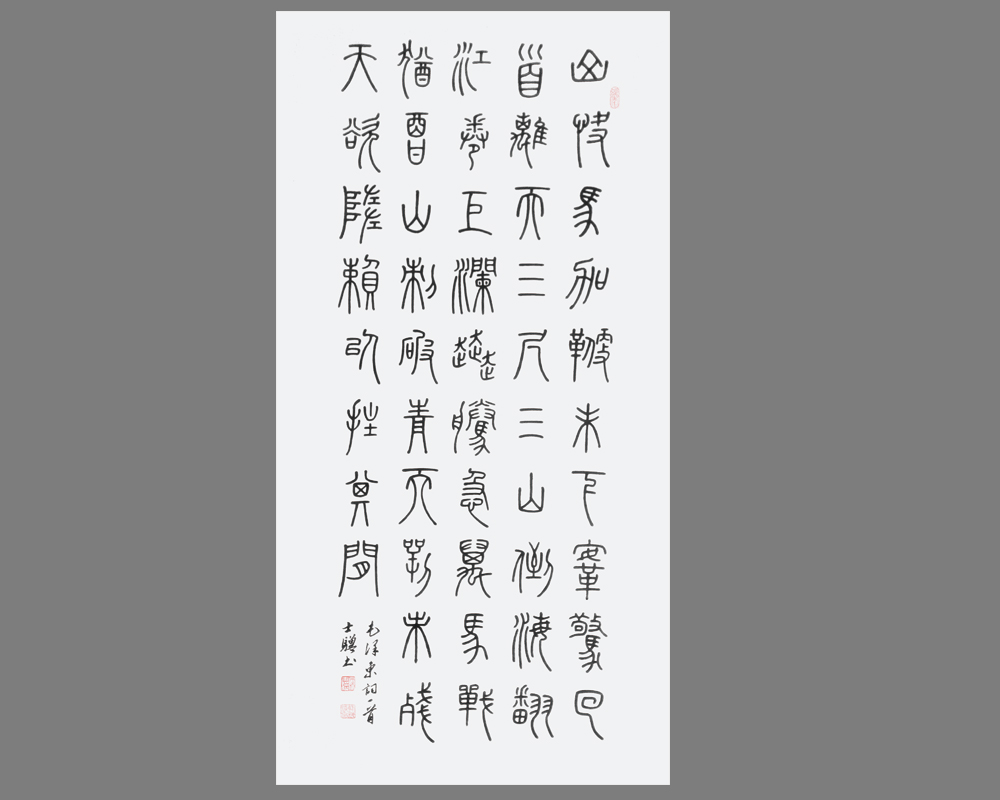 山快馬加鞭未下鞍驚回
首離天三尺三山倒海翻
江卷巨瀾奔騰急萬馬戰
猶酣山刺破青天鍔未殘
天欲墮賴以拄其間
毛澤東詞一首
士书